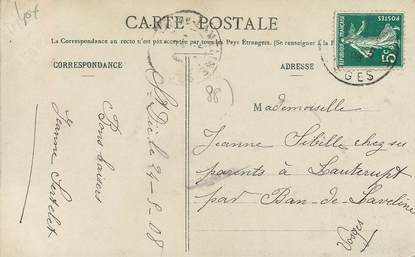 CARTE POSTALE
La Correspondance au recto n'est pas acceptée par tous les Pays Étrangers. (Se renseigner à la
CORRESPONDANCE
ADRESSE
88
St Dié le 21-8-08
Bons baisers
Jeanne
Mademoiselle
Jeanne Sibille chez ses
parents à Lauterupt
par Ban-de-Laveline
Vosges
5c
GES